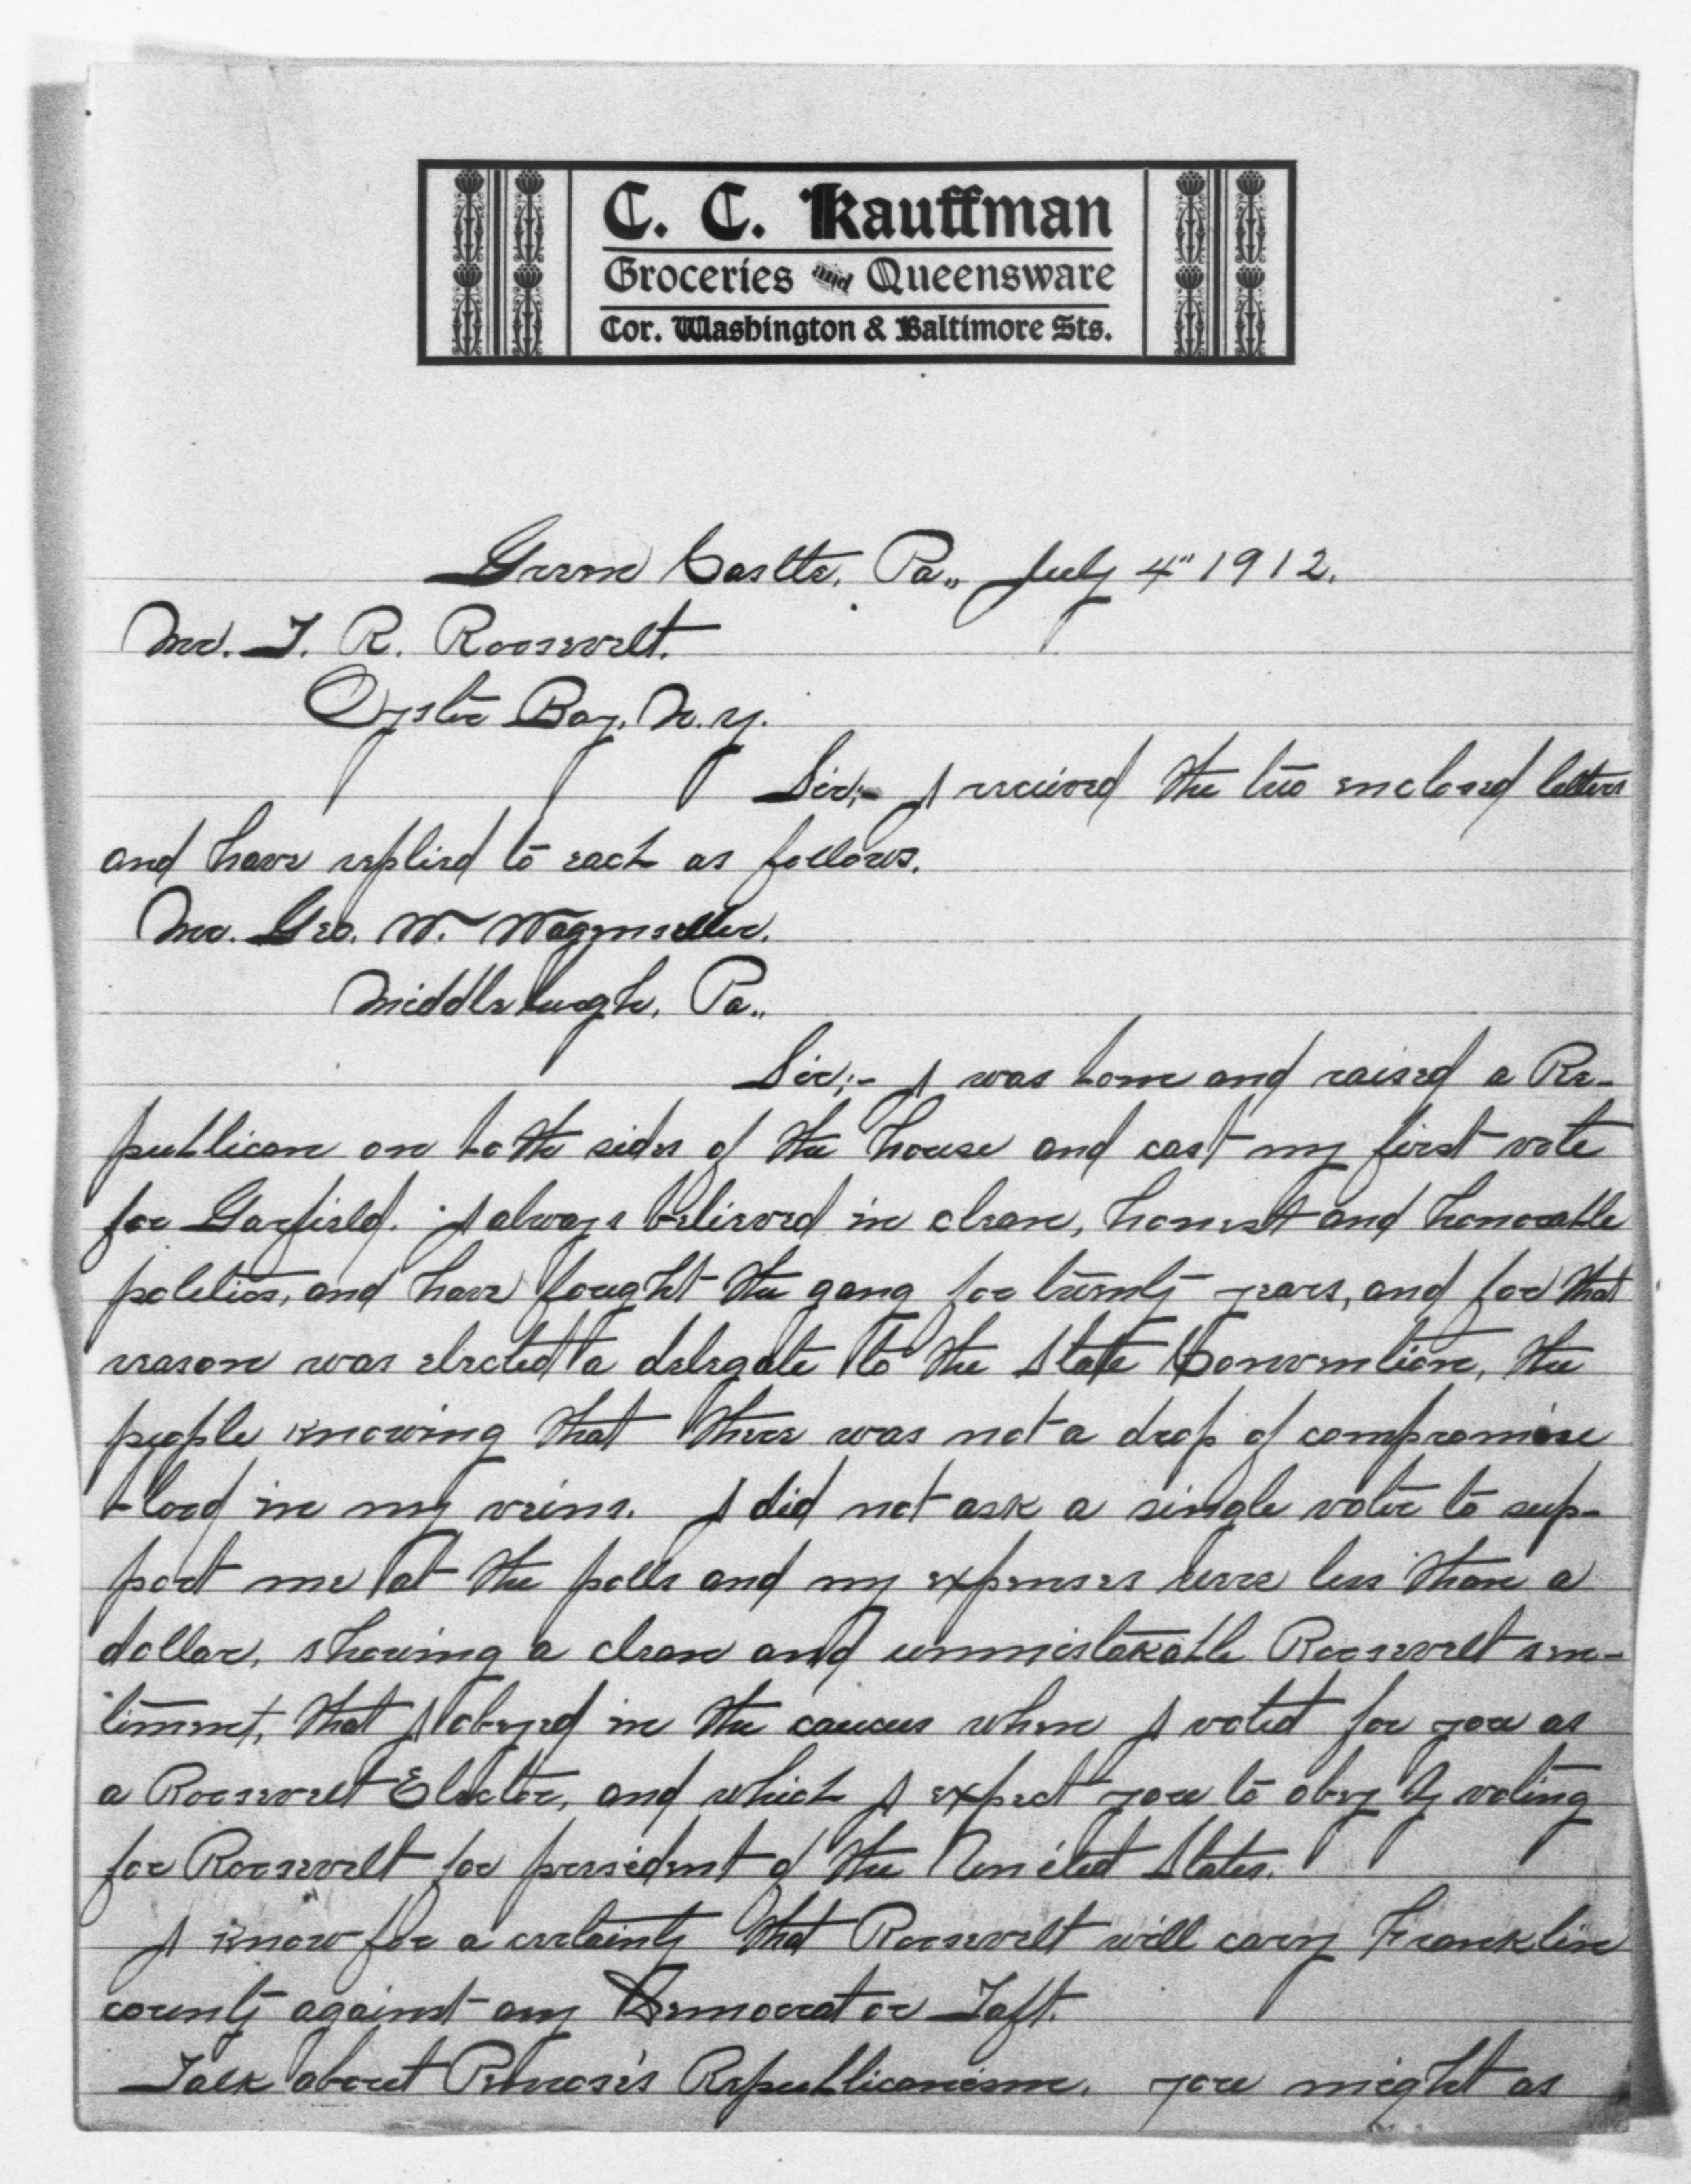 C. C. Kauffman
Groceries and Queensware
Cor. Washington & Baltimore Sts.
Green Castle, Pa., July 4" 1912.
Mr. T. R. Roosevelt.
Oyster Bay, N. Y.
Sir;- I recieved the two enclosed letters
and have replied to each as follows.
Mr. Geo. W. Wagenseller.
Middleburgh, Pa.,
Sir;- I was born and raised a Re-
publican on both sides of the house and cast my first vote
for Garfield. I always believed in clean, honest and honorable
politics, and have fought the gang for twenty years, and for that
reason was elected a delegate to the State Convention, the
people knowing that there was not a drop of compromise
blood in my veins. I did not ask a single voter to sup-
port me at the polls and my expenses were less than a
dollar, showing a clean and unmistakable Roosevelt sen-
timent, that I obeyed in the caucus when I voted for you as
a Roosevelt Elector, and which I expect you to obey by voting
for Roosevelt for president of the United States.
I know for a certainty that Roosevelt will carry Franklin
county against any Democrat or Taft.
Talk about Penrose's Republicanism. you might as